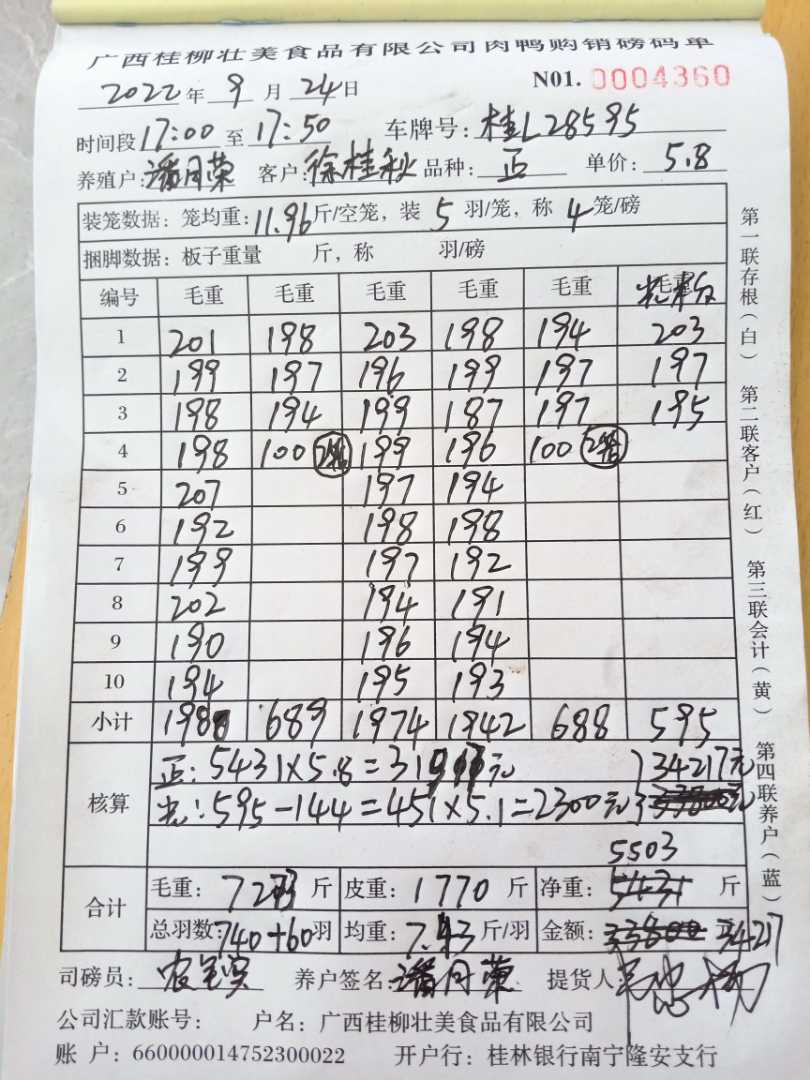 广西桂柳壮美食品有限公司肉鸭购销磅码单
2022年9月24日 N01. 0004360
时间段17:00至17:50 车牌号:桂L28595
养殖户:潘月荣 客户:徐桂秋 品种:正 单价:5.8
装笼数据:笼均重:11.96斤/空笼,装5羽/笼,称4笼/磅
捆脚数据:板子重量 斤,称 羽/磅
编号 毛重 毛重 毛重 毛重 毛重 毛重
1 201 198 203 198 194 203
2 199 197 196 199 197 197
3 198 194 199 187 197 195
4 198 100 199 196 100
5 207 197 194
6 192 198 198
7 199 197 192
8 202 194 191
9 190 196 194
10 194 195 193
小计 1980 689 1974 1942 688 595
核算
正:5431×5.8=31917元 34217元
光:595-144=451×5.1=2300元
5503
合计
毛重:7273斤 皮重:1770斤 净重:5431斤
总羽数:740+60羽 均重:7.43斤/羽 金额:33800 34217
司磅员: 养户签名:潘月荣 提货人
公司汇款账号: 户名:广西桂柳壮美食品有限公司
账 户:660000014752300022 开户行:桂林银行南宁隆安支行
第一联存根(白) 第二联客户(红) 第三联会计(黄) 第四联养户(蓝)